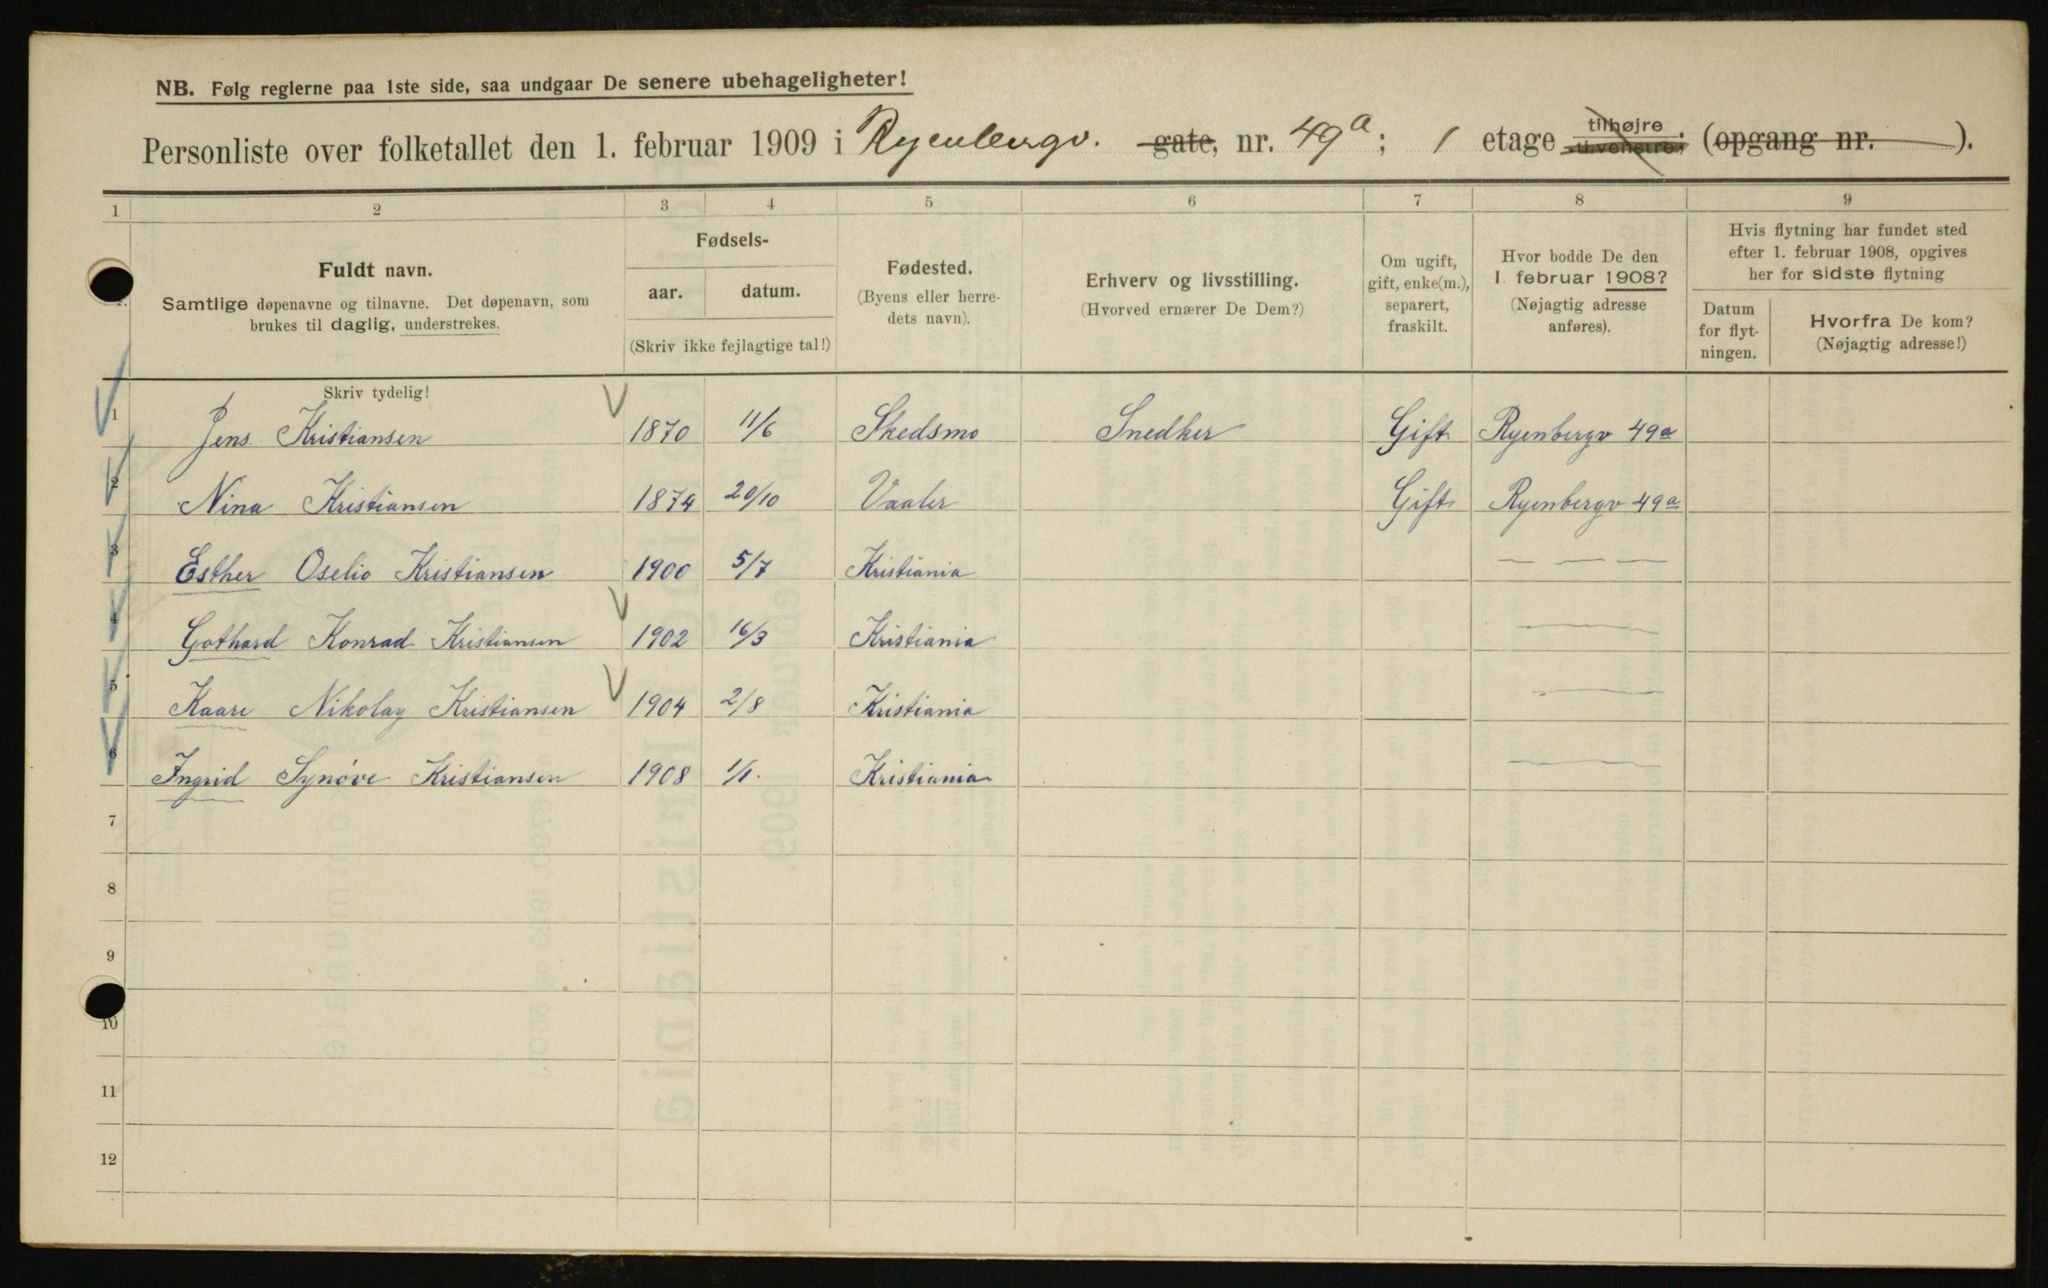 NB. Følg reglerne paa 1ste side, saa undgaar De senere ubehageligheter!
Personliste over folketallet den 1. februar 1909 i Ryenbergv. gate, nr. 49a; 1 etage tilhøjre til venstre; (opgang nr. ).
1 2 3 4 5 6 7 8 9
Fuldt navn.
Samtlige døpenavne og tilnavne. Det døpenavn, som
brukes til daglig, understrekes.
Fødsels-
aar. datum.
(Skriv ikke fejlagtige tal!)
Fødested.
(Byens eller herre-
dets navn).
Erhverv og livsstilling.
(Hvorved ernærer De Dem?)
Om ugift,
gift, enke(m.),
separert,
fraskilt.
Hvor bodde De den
1. februar 1908?
(Nøjagtig adresse
anføres).
Hvis flytning har fundet sted
efter 1. februar 1908, opgives
her for sidste flytning
Datum
for flyt-
ningen.
Hvorfra De kom?
(Nøjagtig adresse!)
Skriv tydelig!
1 Jens Kristiansen 1870 11/6 Skedsmo Snedker Gift Ryenbergv 49a
2 Nina Kristiansen 1874 20/10 Vaaler Gift Ryenbergv 49a
3 Esther Oselio Kristiansen 1900 5/7 Kristiania — — —
4 Gothard Konrad Kristiansen 1902 16/3 Kristiania —
5 Kaare Nikolay Kristiansen 1904 2/8 Kristiania —
6 Ingrid Synøve Kristiansen 1908 1/1. Kristiania —
7
8
9
10
11
12